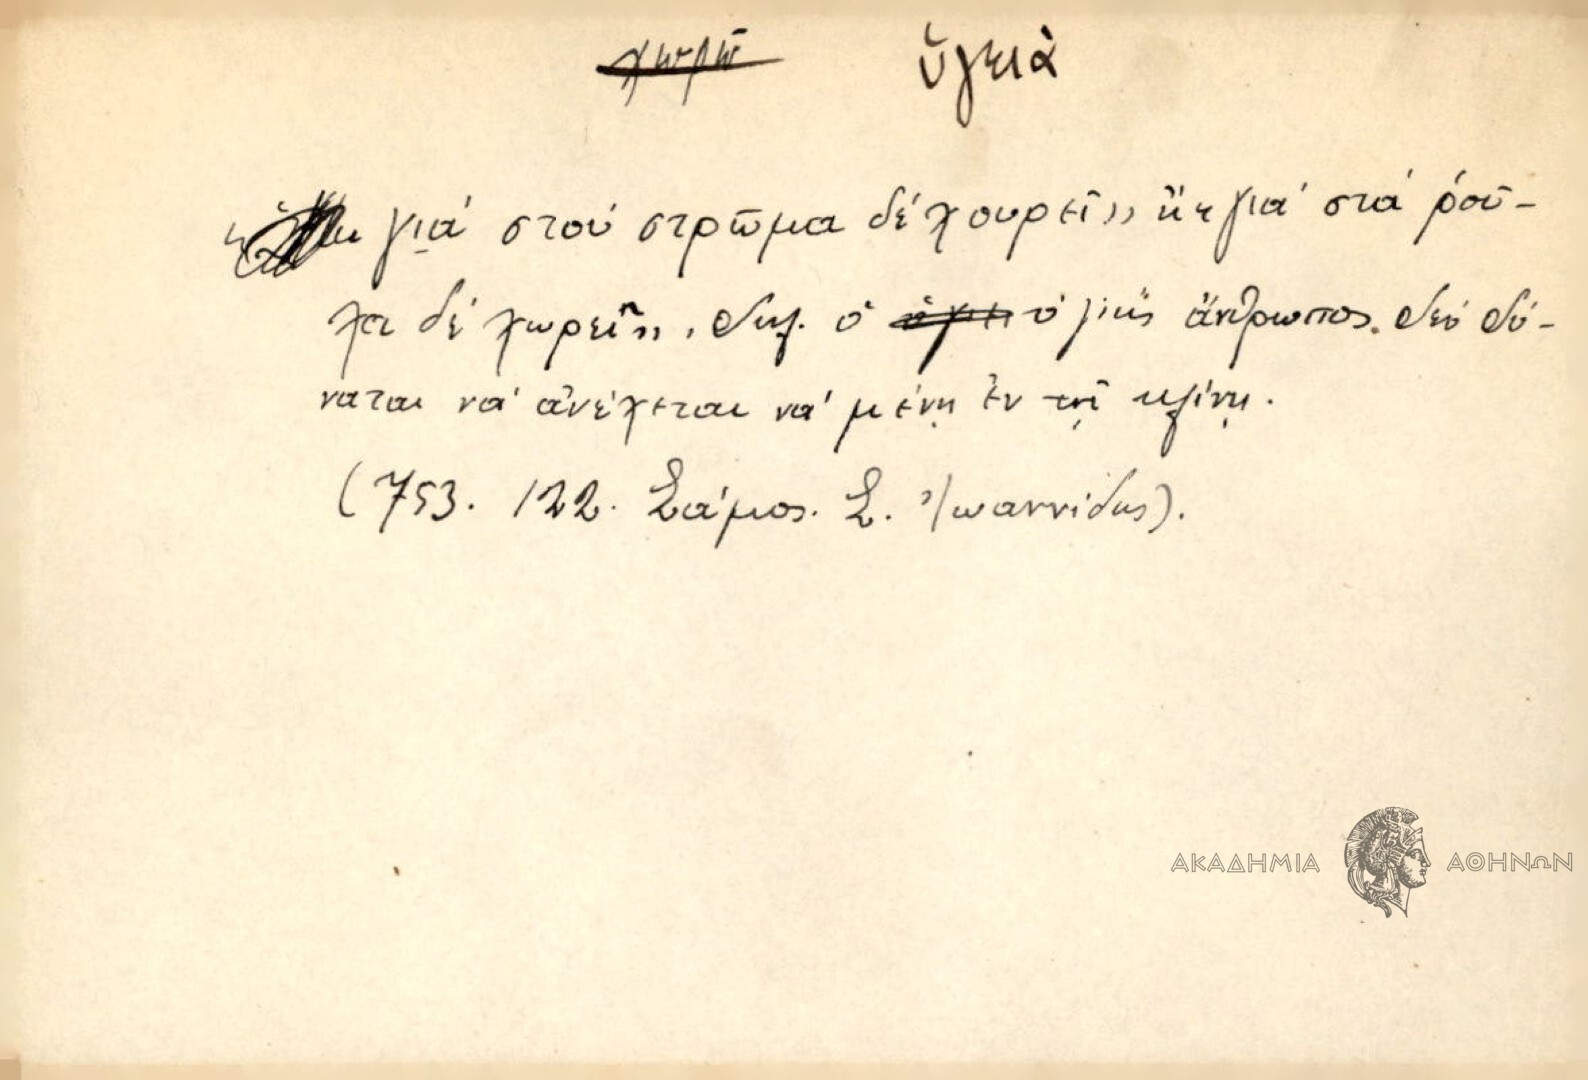 χωρῶ ὑγειὰ
γιά στού στρῶμα δέ χουρεῖ,, ἤ γιά στά ροῦ-
χα δέ χωρεῖ,,. δηλ. ὁ ὑγιής ἄνθρωπος δέν δύ-
ναται νά ἀνέχεται νά μένῃ ἐν τῇ κλίνῃ.
(753. 122. Σάμος. Σ. Ἰωαννίδης).
ΑΚΑΔΗΜΙΑ ΑΘΗΝΩΝ